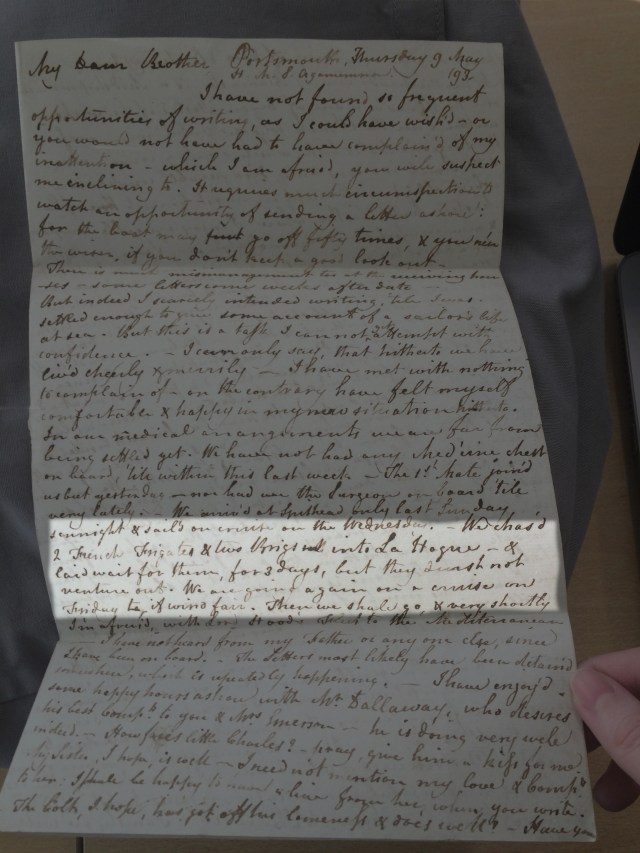 My Dear Brother Portsmouth, Thursday 9 May
H. M. S. Agamemnon 193-
I have not found so frequent
opportunities of writing, as I could have wish'd - or
you would not have had to have complain'd of my
inattention - which I am afraid, you will suspect
me inclining to. It requires much circumspection to
watch an opportunity of sending a letter ashore:
for the boat may go off fifty times, & you
the wiser, if you don't keep a good look out -
There is much mismanagement too at the receiving hou
-ses - some letters come weeks after date -
But indeed I scarcely intended writing, 'till I was
settled enough to give some account of a sailor's life
at sea. But this is a task I cannot attempt with
confidence. - I can only say, that hitherto we have
liv'd cheerly & merrily - I have met with nothing
to complain of - on the contrary have felt myself
comfortable & happy in my new situation hitherto.
In our medical arrangements we are far from
being settled yet. We have not had any Medicine Chest
on board, 'till within this last week. - The 1st Mate join'd
us but yesterday - nor had we the Surgeon on board 'till
very lately. - We arriv'd at Spithead only last Sunday
sennight & sail'd on cruise on the Wednesday. - We chas'd
2 French Frigates & two Brigs into La Hogue - &
laid wait for them, for 3 days, but they durst not
venture out. We are going again on a cruise on
Friday if wind fair. Then we shall go, & very shortly
I'm afraid, with Lord Hood's Fleet to the Mediterranean
- I have not heard from my Father or any one else, since
I have been on board. - The Letters most likely have been detain'd
somewhere, which is repeatedly happening. - I have enjoy'd
some happy hours ashore with Mr. Dallaway, who desires
his best Compts. to you & Mrs Emerson - he is doing very well
indeed. - How fares little Charles? - pray, give him a kiss for me
My Sister, I hope, is well - I need not mention my love & Compts
to her: I shall be happy to hear from her, when you write.
The Colt, I hope, has got off his lameness & does well? - Have you